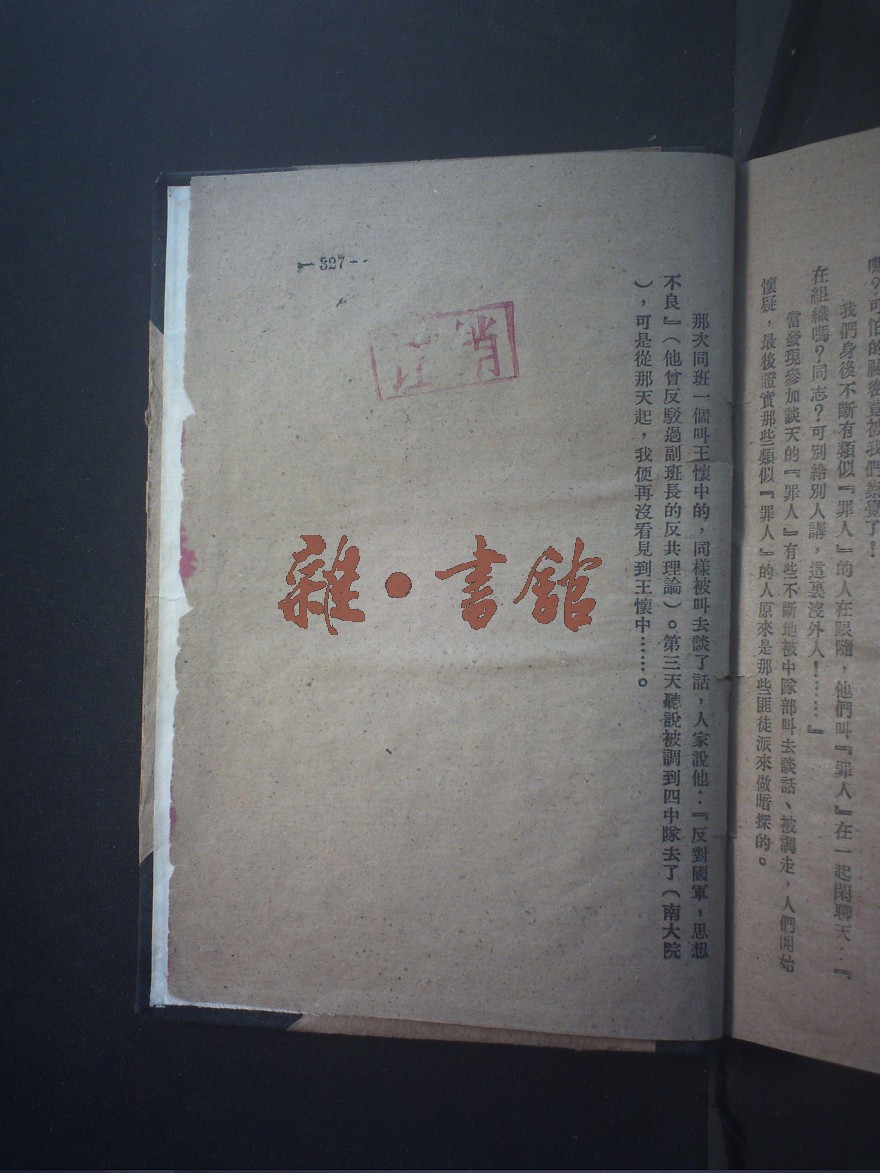 嗎？可怕的祕密竟被我們察覺了！
我們身後不斷有類似『罪人』的人在跟隨，他們叫『罪人』在一起閑聊天：『
在組織嗎？同志？可別給別人講，這裏沒外人！……』
當發現參加談天的『罪人』有些不斷地被中隊部叫去談話、被調走，人們開始
懷疑，最後證實那些類似『罪人』的人原來是那些匪徒派來做暗探的。
那次同班一個叫王懷中的，同樣被叫去談了話，人家說他：『反對國軍，思想
不良』（他曾反駁過副班長的反共理論）。第三天聽說被調到四中隊去了（南大院
），可是從那天起，我便再沒看見到王懷中……。
—327—
註銷
雜·書館